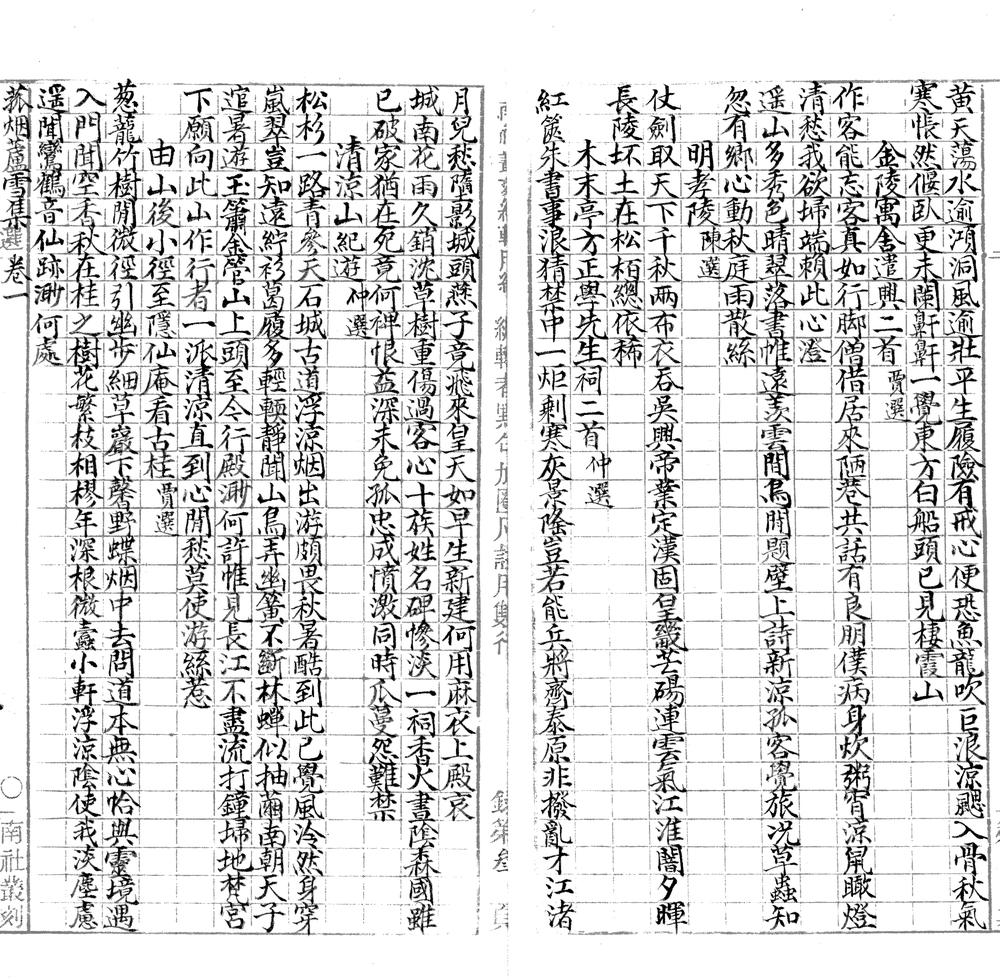 黃天蕩水逾澒洞風逾壯平生履險有戒心便恐魚龍吹巨浪涼颸入骨秋氣
寒悵然偃臥更未闌鼾鼾一覺東方白船頭已見棲霞山
金陵寓舍遣興二首 賈選
作客能忘客真如行腳僧借居來陋巷共話有良朋僕病身炊粥宵涼鼠瞰燈
清愁我欲埽端賴此心澄
遥山多秀色晴翠落書帷遠羨雲間鳥閒題壁上詩新涼孤客覺旅況草蟲知
忽有鄉心動秋庭雨散絲
明孝陵 陳選
仗劍取天下千秋兩布衣吞吳興帝業定漢固皇畿芒碭連雲氣江淮闇夕暉
長陵坏土在松柏總依稀
木末亭方正學先生祠二首 仲選
紅篋朱書事浪猜禁中一炬剩寒灰景隆豈若能兵將齊泰原非撥亂才江渚
月兒愁隋影城頭燕子竟飛來皇天如早生新建何用麻衣上殿哀
城南花雨久銷沈草樹重傷過客心十族姓名碑慘淡一祠香火晝陰森國雖
已破家猶在死竟何裨恨益深未免孤忠成憤激同時瓜蔓怨難禁
清涼山紀遊 仲選
松杉一路青參天石城古道浮涼烟出游頗畏秋暑酷到此已覺風泠然身穿
嵐翠豈知遠紵衫葛履多輕輭靜聞山鳥弄幽簧不斷林蟬似抽繭南朝天子
逭暑遊玉簫金管山上頭至今行殿渺何許惟見長江不盡流打鍾埽地梵宮
下願向此山作行者一派清涼直到心閒愁莫使游絲惹
由山後小徑至隱仙庵看古桂 賈選
葱蘢竹樹閒微徑引幽步細草巖下馨野蝶烟中去問道本無心恰與靈境遇
入門聞空香秋在桂之樹花繁枝相樛年深根微蠹小軒浮涼陰使我淡塵慮
遥聞鸞鶴音仙跡渺何處
菰烟蘆雪集選 卷一
〇 南社叢刻